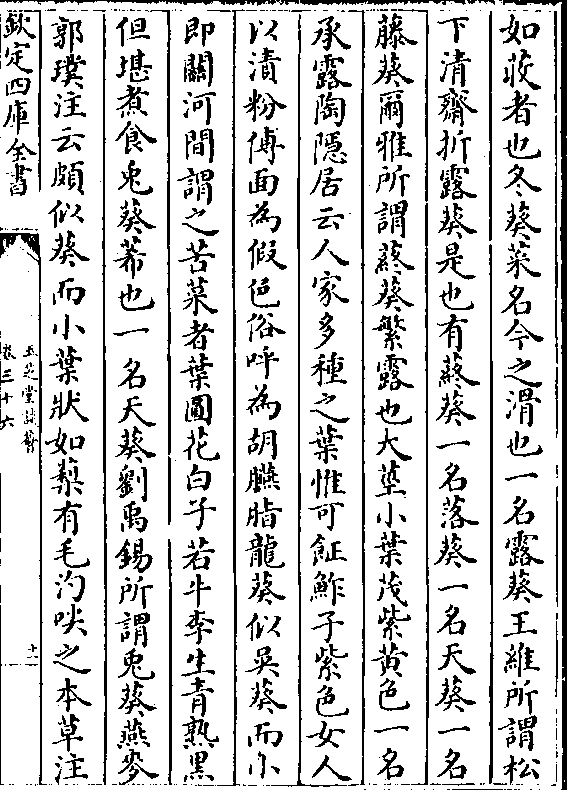 如菽者也冬葵菜名今之滑也一名露葵王維所謂松
下清齋折露葵是也有蔠葵一名落葵一名天葵一名
藤葵爾雅所謂蔠葵繁露也大莖小葉茂紫黄色一名
承露陶隱居云人家多種之葉惟可飣鮓子紫色女人
以漬粉傅面為假色俗呼為胡臙脂龍葵似吳葵而小
即關河間謂之苦菜者葉圓花白子若牛李生青熟黑
但堪煮食兎葵莃也一名天葵劉禹錫所謂兎葵燕麥
郭璞注云頗似葵而小葉狀如藜有毛汋啖之本草注
欽定四庫全書
玉芝堂談薈
卷三十六
十一